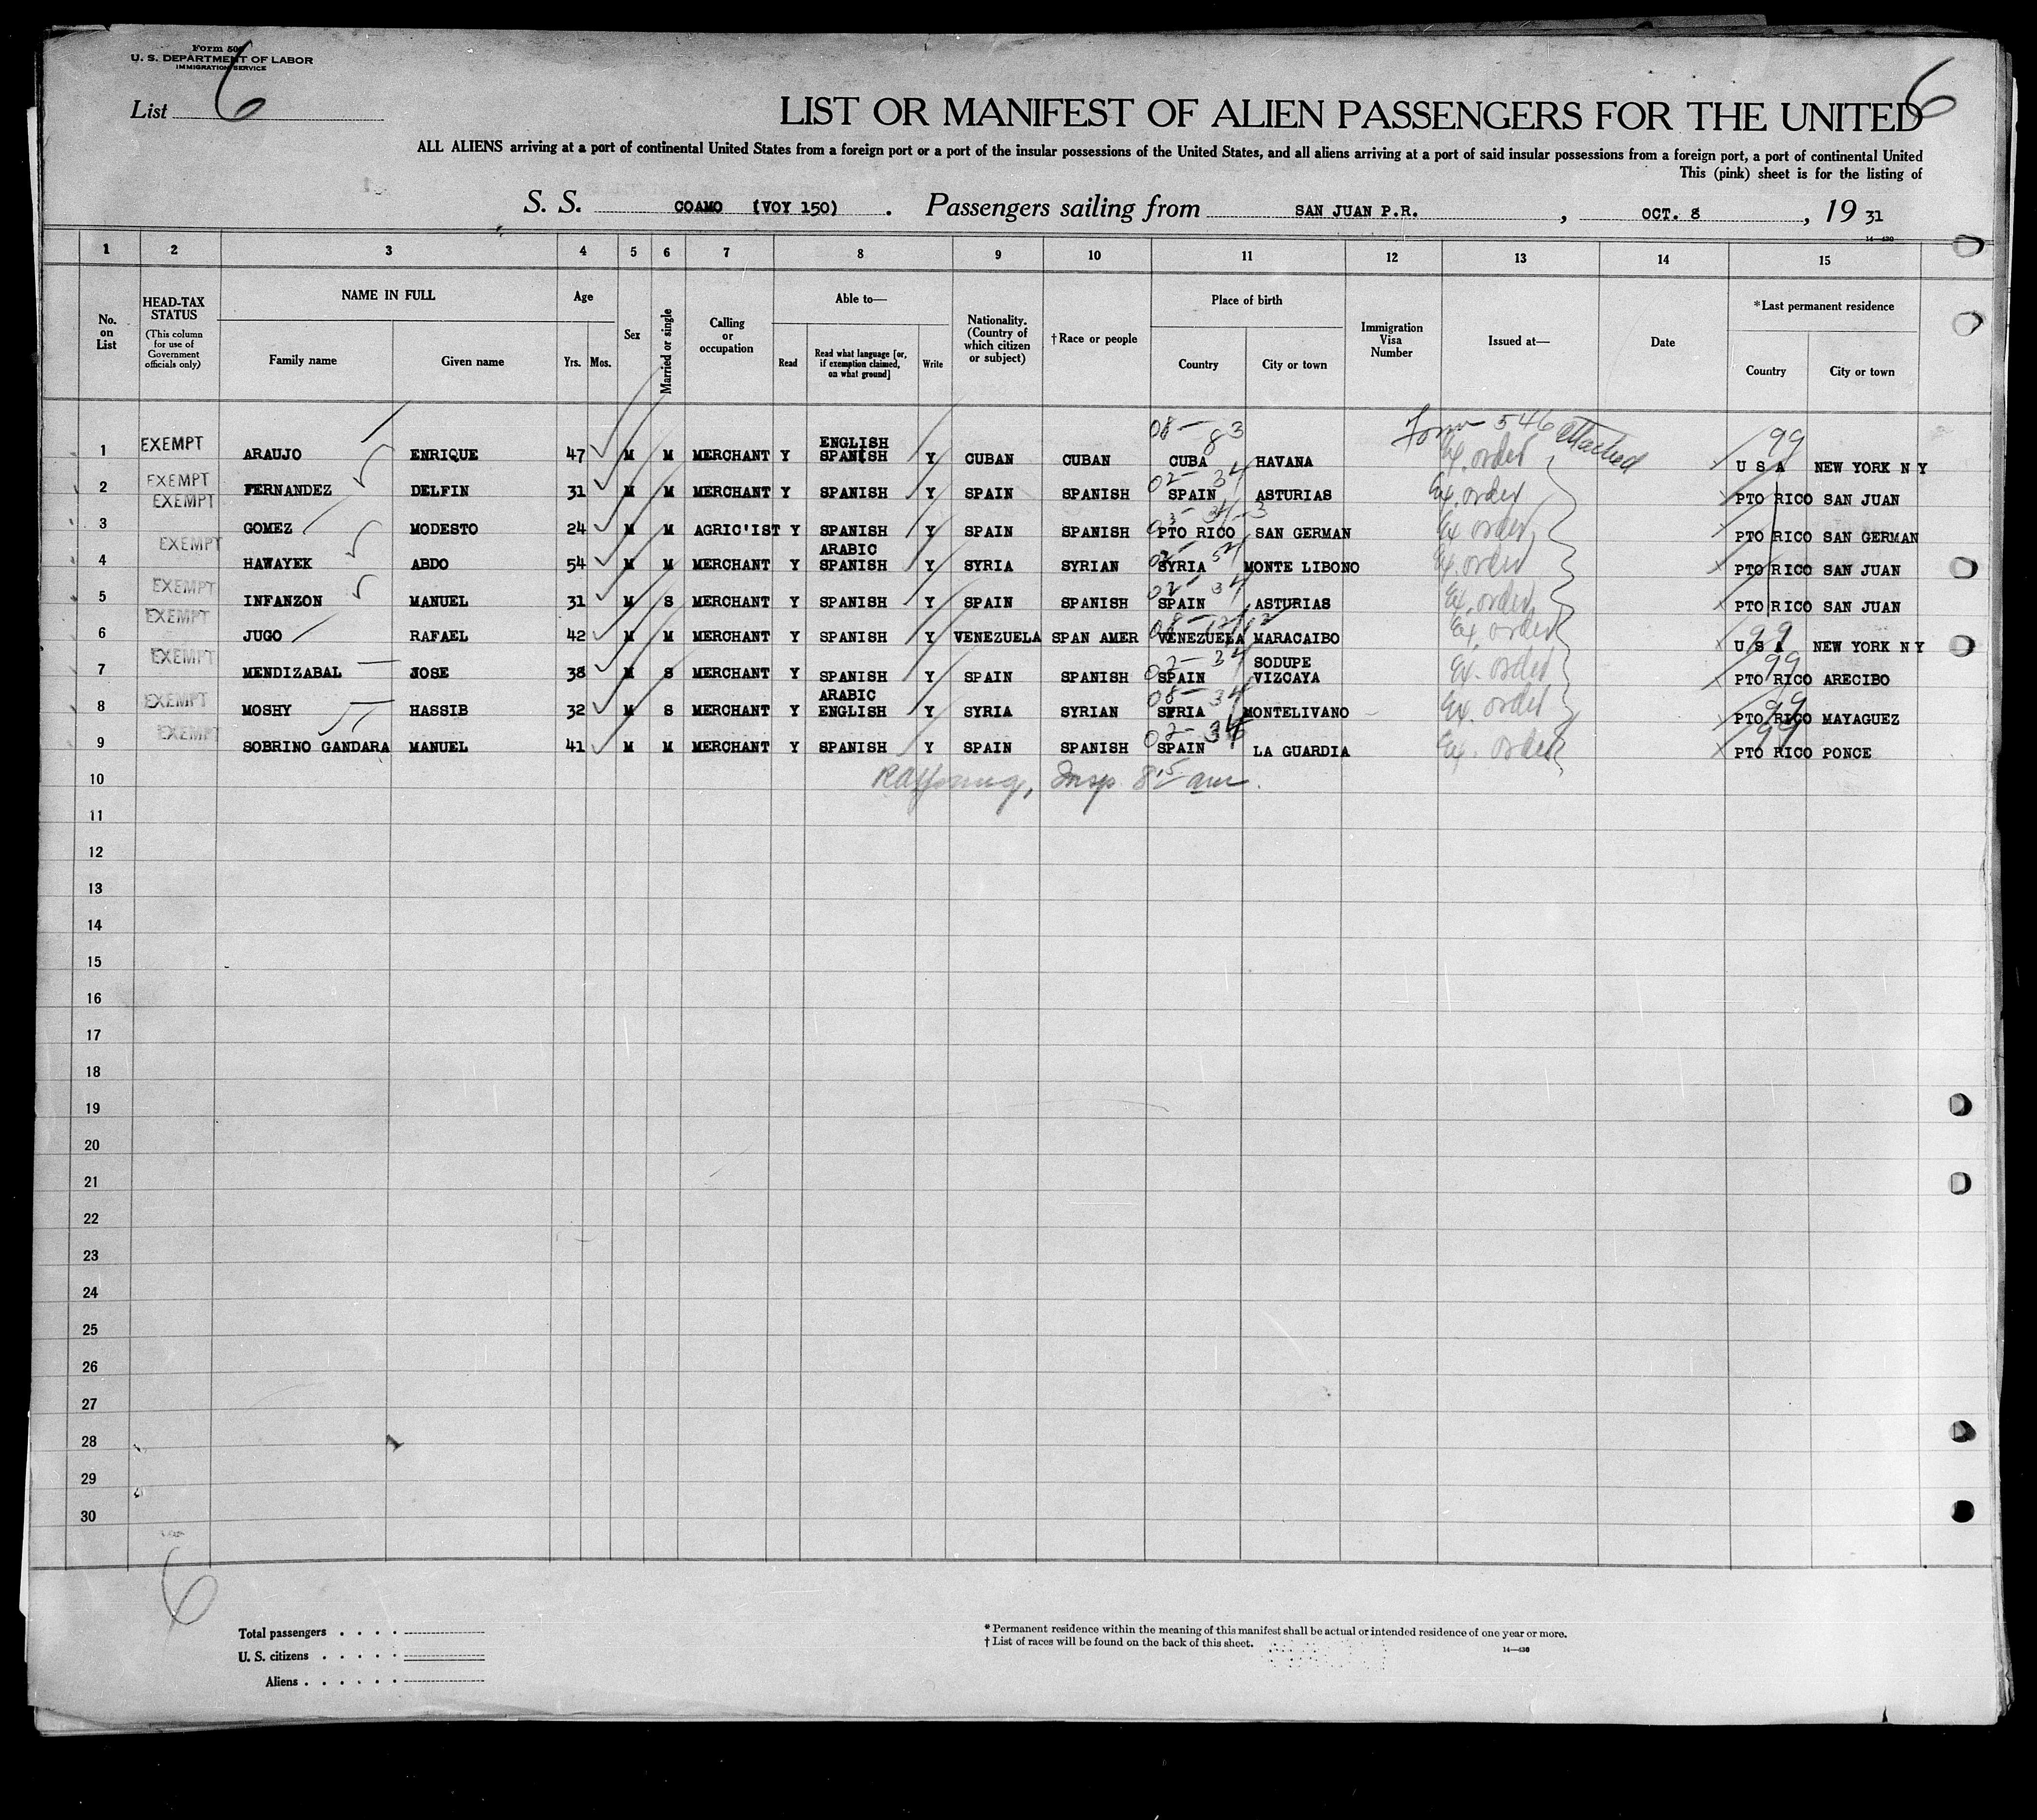 Form 500
U. S. DEPARTMENT OF LABOR
IMMIGRATION SERVICE
List 6
6
LIST OR MANIFEST OF ALIEN PASSENGERS FOR THE UNITED
ALL ALIENS arriving at a port of continental United States from a foreign port or a port of the insular possessions of the United States, and all aliens arriving at a port of said insular possessions from a foreign port, a port of continental United
This (pink) sheet is for the listing of
S. S. COAMO (VOY 150) . Passengers sailing from SAN JUAN P.R. , OCT. 8 , 19 31
14—430
1 2 3 4 5 6 7 8 9 10 11 12 13 14 15
No. on List
HEAD-TAX STATUS
(This column for use of Government officials only)
NAME IN FULL
Family name Given name
Age
Yrs. Mos.
Sex
Married or single
Calling or occupation
Able to—
Read
Read what language [or, if exemption claimed, on what ground]
Write
Nationality. (Country of which citizen or subject)
†Race or people
Place of birth
Country City or town
Immigration Visa Number
Issued at—
Date
*Last permanent residence
Country City or town
Form 546 attached
08— 83 99
1 EXEMPT ARAUJO ENRIQUE 47 M M MERCHANT Y ENGLISH SPANISH Y CUBAN CUBAN CUBA HAVANA Ex. order U S A NEW YORK N Y
02— 34
2 EXEMPT FERNANDEZ DELFIN 31 M M MERCHANT Y SPANISH Y SPAIN SPANISH SPAIN ASTURIAS Ex. order PTO RICO SAN JUAN
3 EXEMPT GOMEZ MODESTO 24 M M AGRIC'IST Y SPANISH Y SPAIN SPANISH PTO RICO SAN GERMAN Ex. order PTO RICO SAN GERMAN
4 EXEMPT HAWAYEK ABDO 54 M M MERCHANT Y ARABIC SPANISH Y SYRIA SYRIAN SYRIA MONTE LIBONO Ex. order PTO RICO SAN JUAN
02— 34
5 EXEMPT INFANZON MANUEL 31 M S MERCHANT Y SPANISH Y SPAIN SPANISH SPAIN ASTURIAS Ex. order PTO RICO SAN JUAN
99
6 EXEMPT JUGO RAFAEL 42 M M MERCHANT Y SPANISH Y VENEZUELA SPAN AMER VENEZUELA MARACAIBO Ex. order U S A NEW YORK N Y
02— 34 99
7 EXEMPT MENDIZABAL JOSE 38 M S MERCHANT Y SPANISH Y SPAIN SPANISH SPAIN SODUPE VIZCAYA Ex. order PTO RICO ARECIBO
08— 34 99
8 EXEMPT MOSHY HASSIB 32 M S MERCHANT Y ARABIC ENGLISH Y SYRIA SYRIAN SYRIA MONTELIVANO Ex. order PTO RICO MAYAGUEZ
02— 34 99
9 EXEMPT SOBRINO GANDARA MANUEL 41 M M MERCHANT Y SPANISH Y SPAIN SPANISH SPAIN LA GUARDIA Ex. order PTO RICO PONCE
10 Insp. 8 15 am.
11
12
13
14
15
16
17
18
19
20
21
22
23
24
25
26
27
28
29
30
6
Total passengers . . . .
U. S. citizens . . . . .
Aliens . . . . . .
* Permanent residence within the meaning of this manifest shall be actual or intended residence of one year or more.
† List of races will be found on the back of this sheet.
14—430